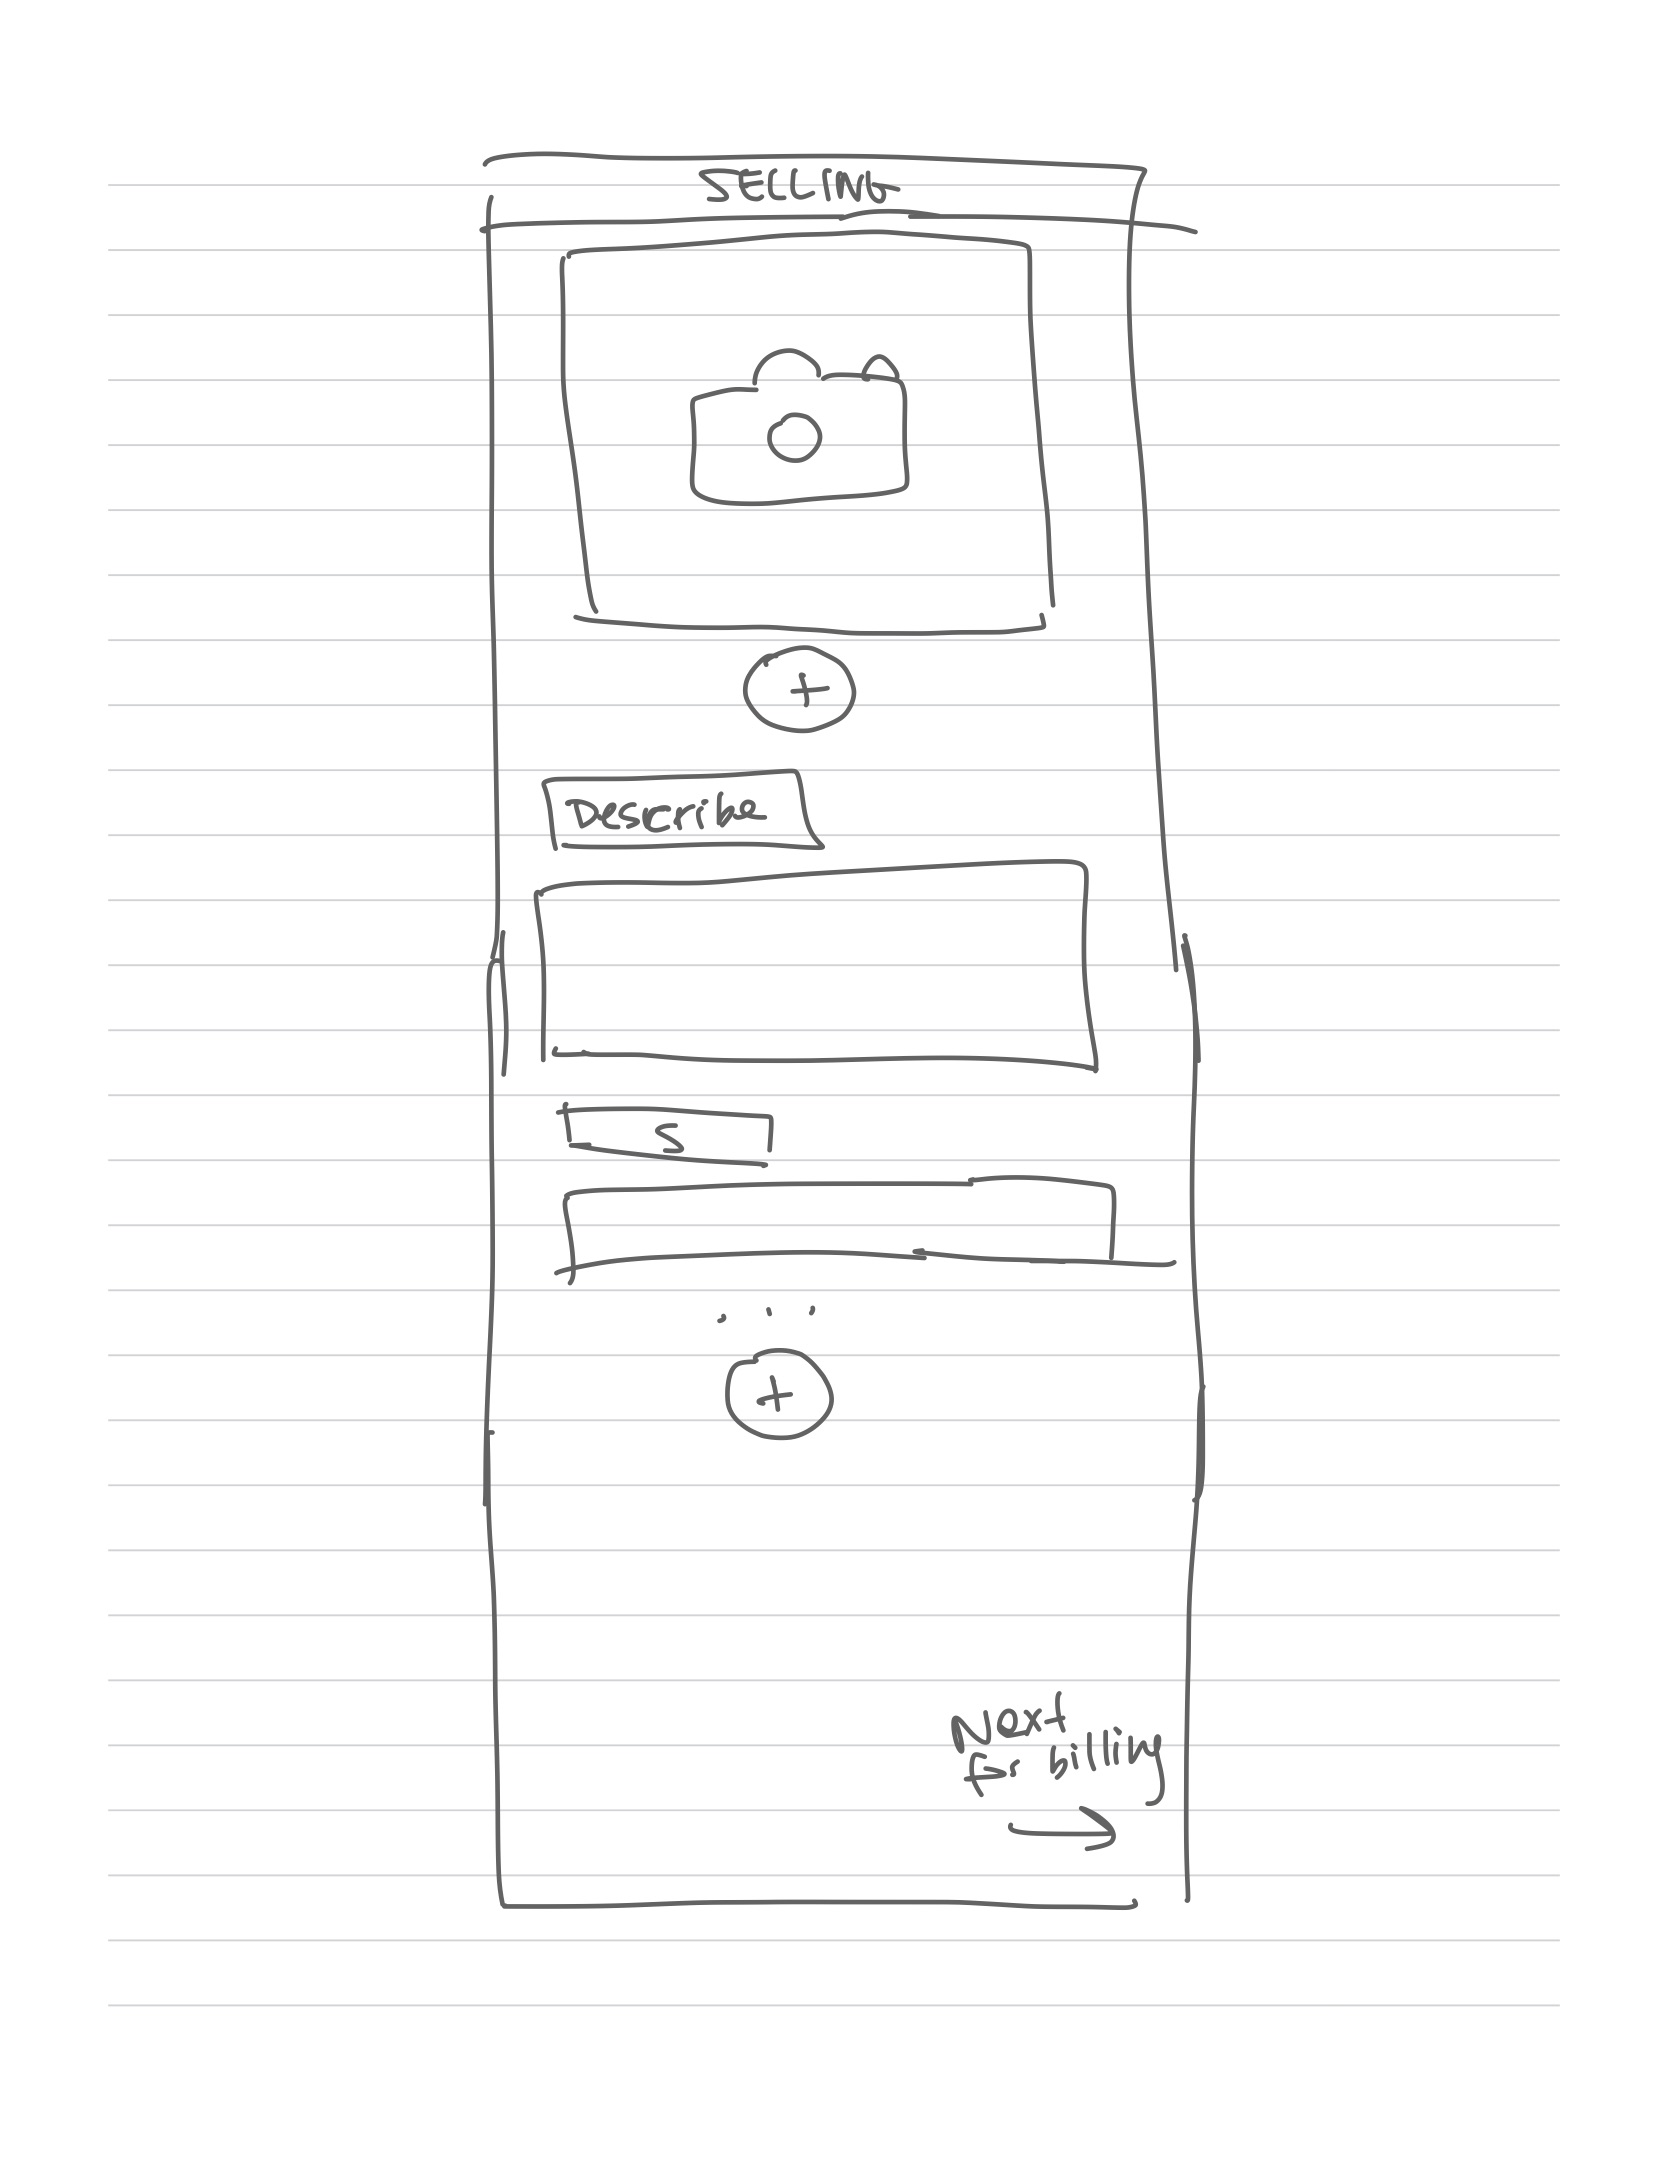 SELLING
+
Describe
S
...
+
Next
for billing